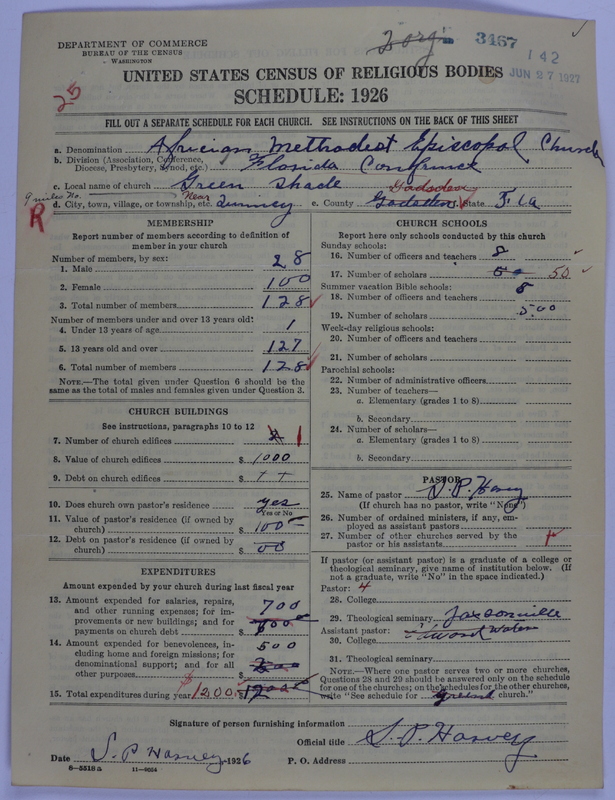 3467
142
JUN 27 1927
DEPARTMENT OF COMMERCE
BUREAU OF THE CENSUS
WASHINGTON
25
UNITED STATES CENSUS OF RELIGIOUS BODIES
SCHEDULE: 1926
FILL OUT A SEPARATE SCHEDULE FOR EACH CHURCH. SEE INSTRUCTIONS ON THE BACK OF THIS SHEET
a. Denomination Africian Methodest Episcopal Church
b. Division (Association, Conference, Diocese, Presbytery, Synod, etc.) Florida
c. Local name of church Green Shade
9 miles No. Near Gadsden
R d. City, town, village, or township, etc. Quinncy e. County State Fla
MEMBERSHIP
Report number of members according to definition of
member in your church
Number of members, by sex:
1. Male 28
2. Female 100
3. Total number of members 128
Number of members under and over 13 years old:
4. Under 13 years of age 1
5. 13 years old and over 127
6. Total number of members 128
NOTE.—The total given under Question 6 should be the
same as the total of males and females given under Question 3.
CHURCH BUILDINGS
See instructions, paragraphs 10 to 12
7. Number of church edifices 1
8. Value of church edifices $ 1000
9. Debt on church edifices $
10. Does church own pastor's residence yes
Yes or No
11. Value of pastor's residence (if owned by
church) $ 100
12. Debt on pastor's residence (if owned by
church) $ 00
EXPENDITURES
Amount expended by your church during last fiscal year
13. Amount expended for salaries, repairs,
and other running expenses; for improvements or new buildings; and for
payments on church debt $ 700
14. Amount expended for benevolences, including home and foreign missions; for
denominational support; and for all
other purposes 500
15. Total expenditures during year $ 1200
CHURCH SCHOOLS
Report here only schools conducted by this church
Sunday schools:
16. Number of officers and teachers 8
17. Number of scholars 50
Summer vacation Bible schools:
18. Number of officers and teachers 8
19. Number of scholars 5.00
Week-day religious schools:
20. Number of officers and teachers
21. Number of scholars
Parochial schools:
22. Number of administrative officers
23. Number of teachers—
a. Elementary (grades 1 to 8)
b. Secondary
24. Number of scholars—
a. Elementary (grades 1 to 8)
b. Secondary
PASTOR
25. Name of pastor S. P. Harvey
(If church has no pastor, write "None")
26. Number of ordained ministers, if any, employed as assistant pastors
27. Number of other churches served by the
pastor or his assistants
If pastor (or assistant pastor) is a graduate of a college or
theological seminary, give name of institution below. (If
not a graduate, write "No" in the space indicated.)
Pastor: 4
28. College
29. Theological seminary
Assistant pastor:
30. College
31. Theological seminary
NOTE.—Where one pastor serves two or more churches,
Questions 28 and 29 should be answered only on the schedule
for one of the churches; on the schedules for the other churches,
write "See schedule for church."
Signature of person furnishing information
Official title S. P. Harvey
Date S. P. Harvey 1926 P. O. Address
6—5518a 11—9024